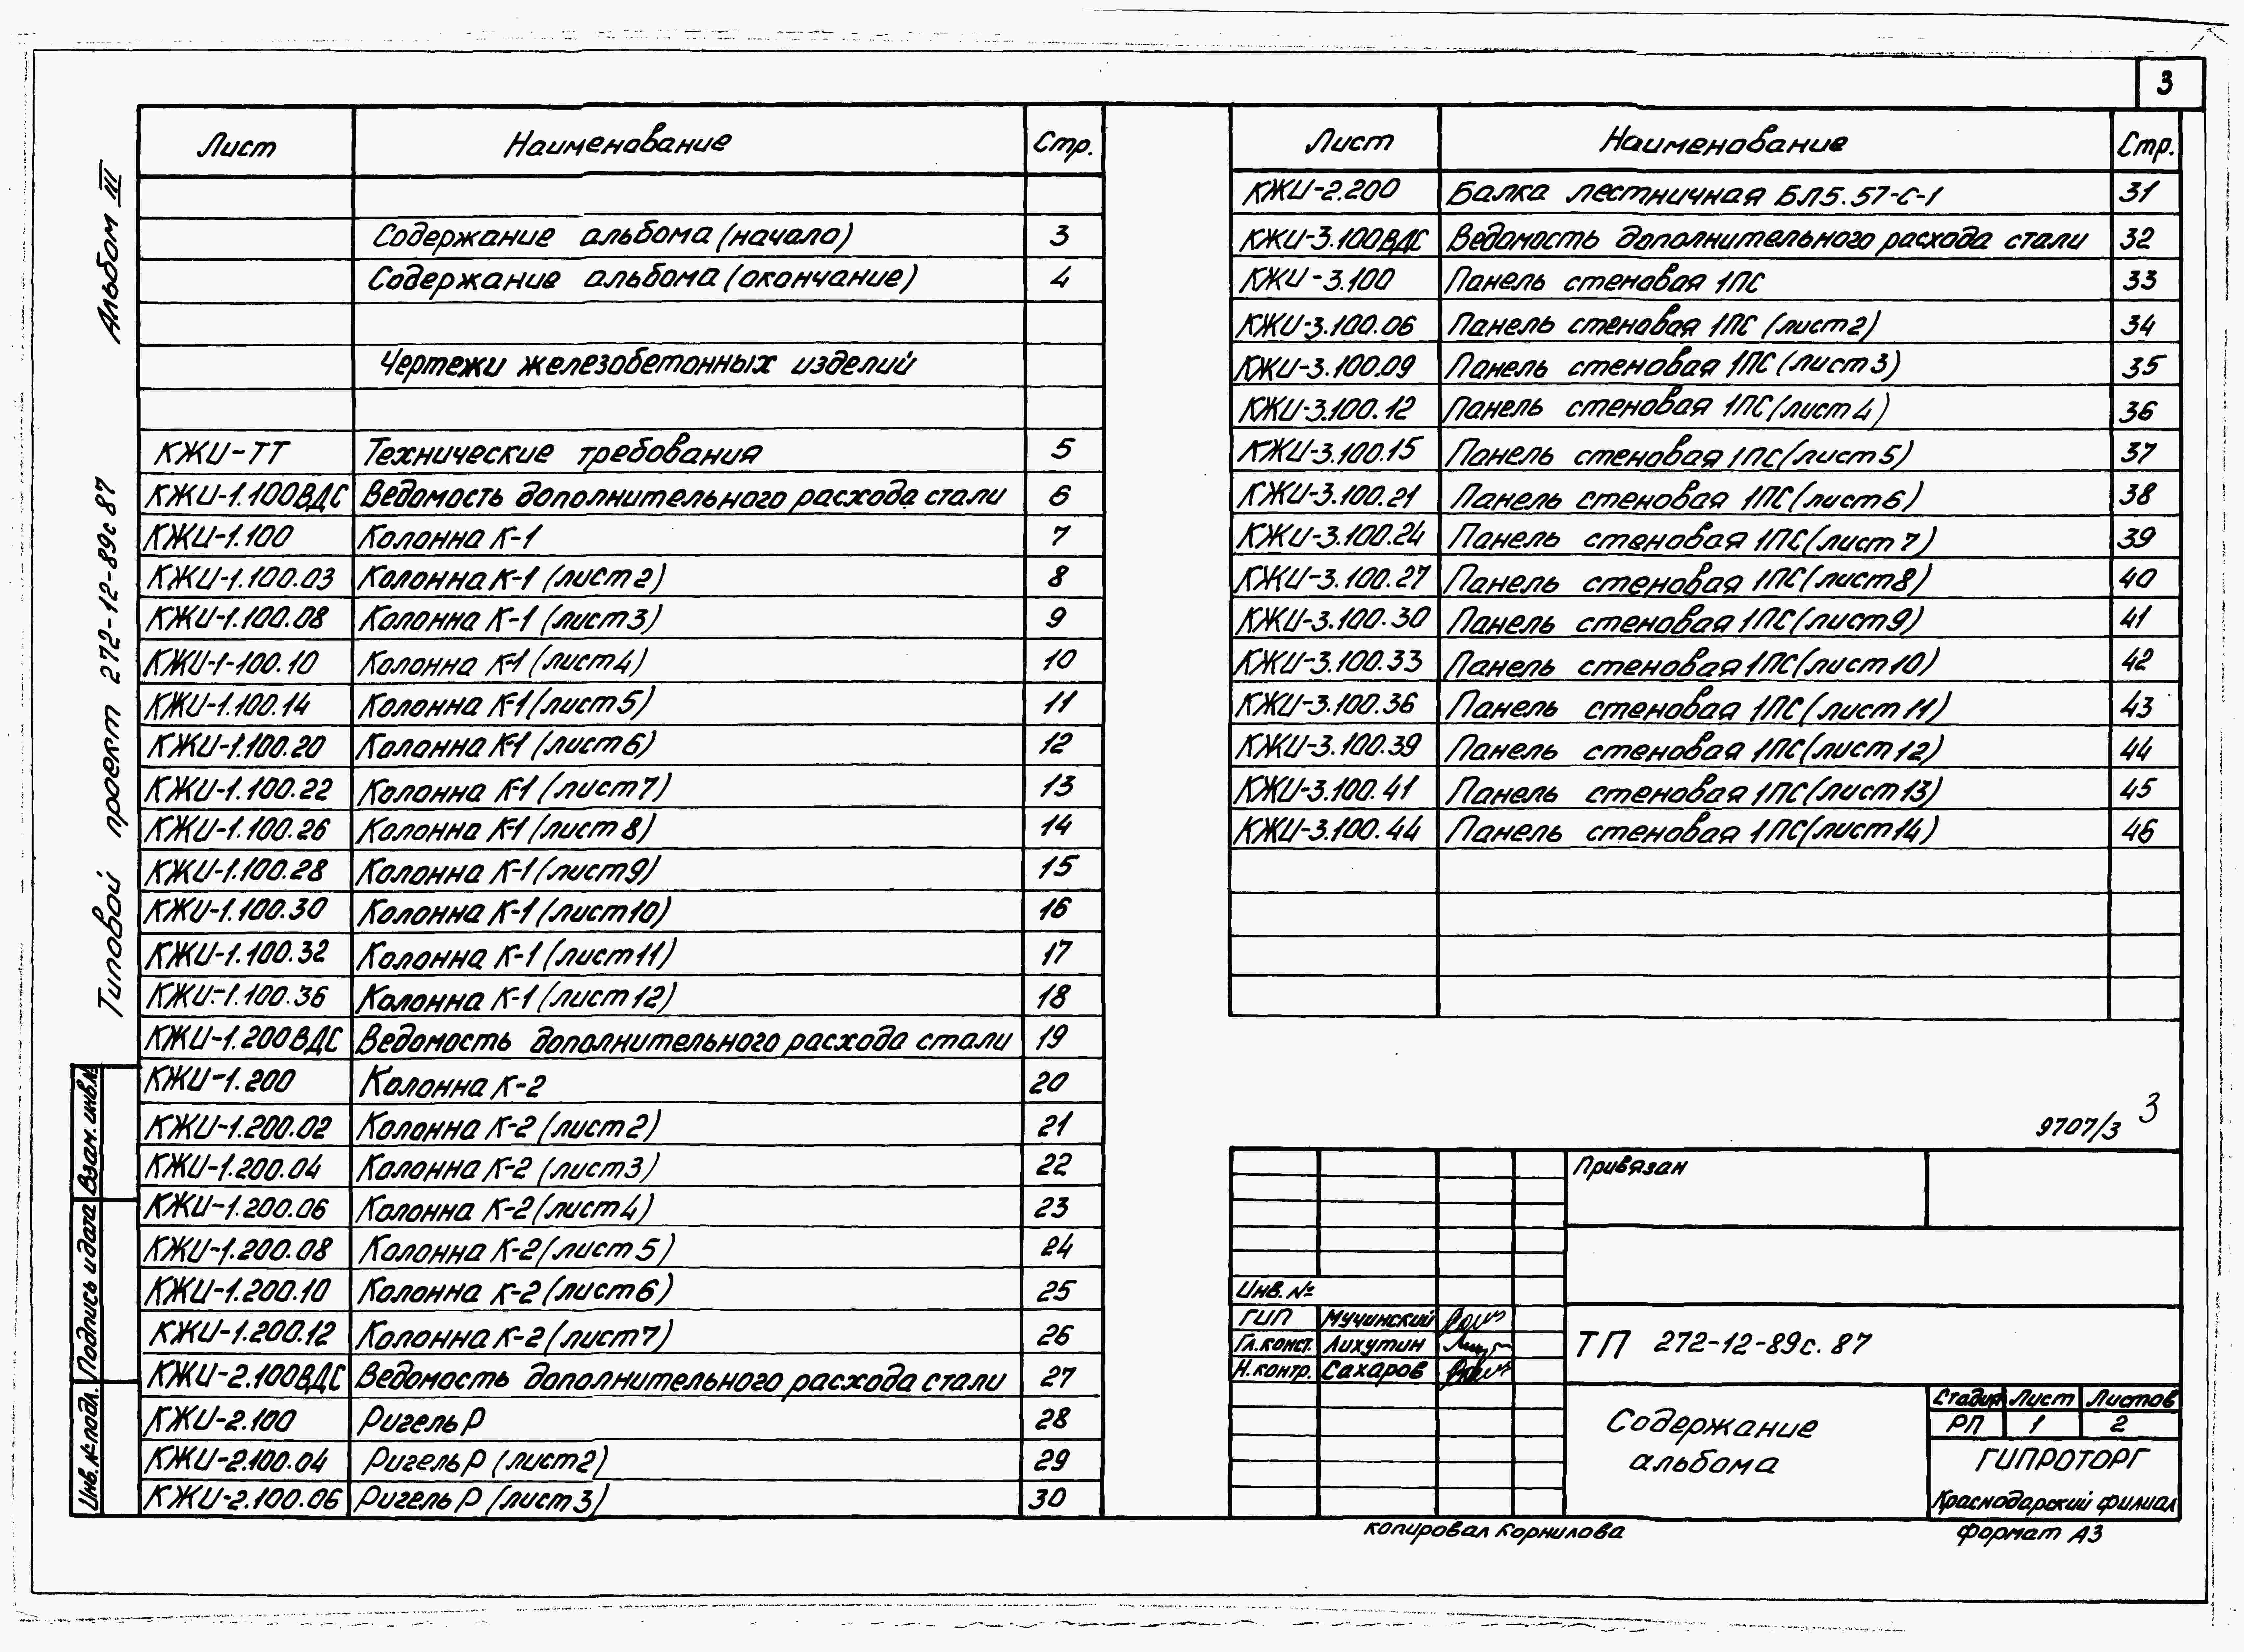 3
Альбом III
Типовой проект 272-12-89с87
Лист Наименование Стр.
Содержание альбома (начало) 3
Содержание альбома (окончание) 4
Чертежи железобетонных изделий
КЖИ-ТТ Технические требования 5
КЖИ-1.100ВДС Ведомость дополнительного расхода стали 6
КЖИ-1.100 Колонна К-1 7
КЖИ-1.100.03 Колонна К-1 (лист2) 8
КЖИ-1.100.08 Колонна К-1 (лист3) 9
КЖИ-1-100.10 Колонна К-1 (лист4) 10
КЖИ-1.100.14 Колонна К-1 (лист5) 11
КЖИ-1.100.20 Колонна К-1 (лист6) 12
КЖИ-1.100.22 Колонна К-1 (лист7) 13
КЖИ-1.100.26 Колонна К-1 (лист 8) 14
КЖИ-1.100.28 Колонна К-1 (лист9) 15
КЖИ-1.100.30 Колонна К-1 (лист10) 16
КЖИ-1.100.32 Колонна К-1 (лист11) 17
КЖИ-1.100.36 Колонна К-1 (лист12) 18
КЖИ-1.200ВДС Ведомость дополнительного расхода стали 19
КЖИ-1.200 Колонна К-2 20
КЖИ-1.200.02 Колонна К-2 (лист2) 21
КЖИ-1.200.04 Колонна К-2 (лист3) 22
КЖИ-1.200.06 Колонна К-2 (лист4) 23
КЖИ-1.200.08 Колонна К-2 (лист 5) 24
КЖИ-1.200.10 Колонна К-2 (лист6) 25
КЖИ-1.200.12 Колонна К-2 (лист7) 26
КЖИ-2.100ВДС Ведомость дополнительного расхода стали 27
КЖИ-2.100 Ригель Р 28
КЖИ-2.100.04 Ригель Р (лист2) 29
КЖИ-2.100.06 Ригель Р (лист 3) 30
Лист Наименование Стр.
КЖИ-2.200 Балка лестничная БЛ5.57-С-1 31
КЖИ-3.100ВДС Ведомость дополнительного расхода стали 32
КЖИ-3.100 Панель стеновая 1ПС 33
КЖИ-3.100.06 Панель стеновая 1ПС (лист2) 34
КЖИ-3.100.09 Панель стеновая 1ПС (лист3) 35
КЖИ-3.100.12 Панель стеновая 1ПС (лист 4) 36
КЖИ-3.100.15 Панель стеновая 1ПС (лист5) 37
КЖИ-3.100.21 Панель стеновая 1ПС (лист6) 38
КЖИ-3.100.24 Панель стеновая 1ПС (лист 7) 39
КЖИ-3.100.27 Панель стеновая 1ПС (лист8) 40
КЖИ-3.100.30 Панель стеновая 1ПС (лист9) 41
КЖИ-3.100.33 Панель стеновая 1ПС (лист10) 42
КЖИ-3.100.36 Панель стеновая 1ПС (лист 11) 43
КЖИ-3.100.39 Панель стеновая 1ПС (лист 12) 44
КЖИ-3.100.41 Панель стеновая 1ПС (лист13) 45
КЖИ-3.100.44 Панель стеновая 1ПС (лист14) 46
9707/3 3
Взам. инв.№
Подпись и дата
Инв. № подл.
Привязан
Инв. №
ГИП Мучинский
Гл. конст. Лихутин
Н. контр. Сахаров
ТП 272-12-89с.87
Содержание
альбома
Стадия Лист Листов
РП 1 2
ГИПРОТОРГ
Краснодарский филиал
копировал Корнилова
формат А3